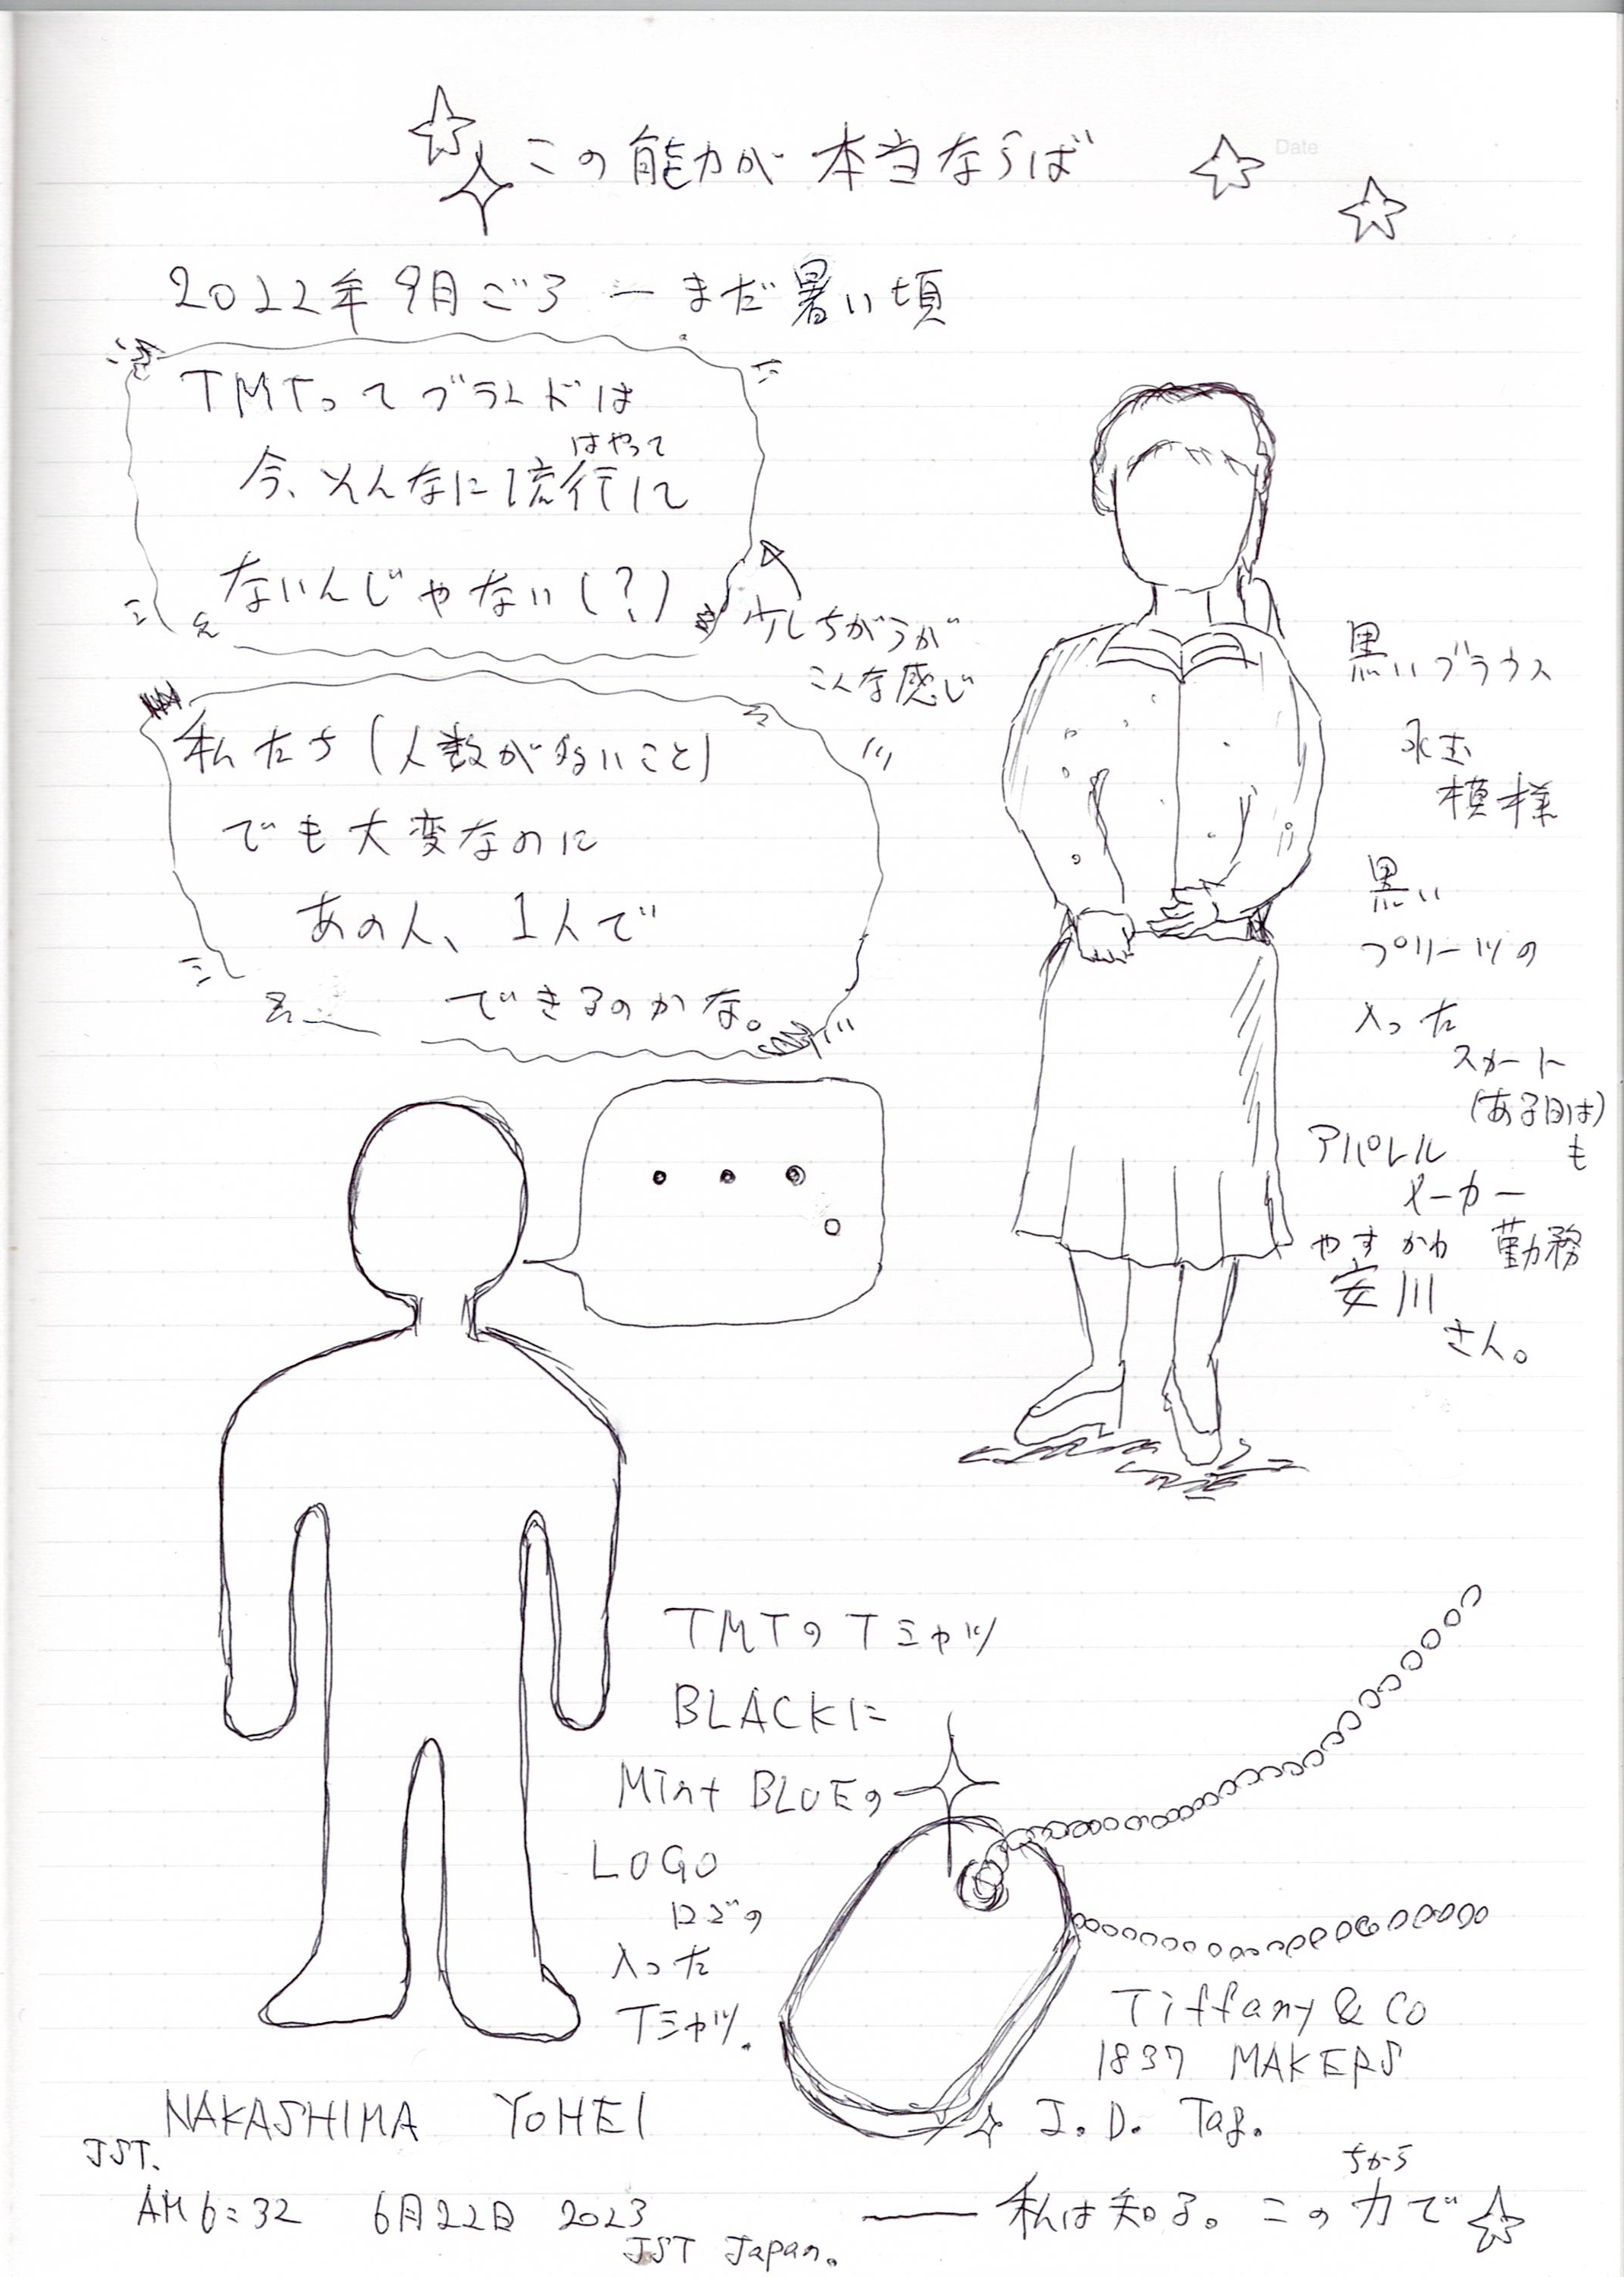 この能力が本当ならば
Date
2022年9月ごろ ー まだ暑い頃
TMTってブランドは
はやって
今、そんなに流行して
ないんじゃない(?)
少しちがうが
こんな感じ
私たち(人数が多いこと)
でも大変なのに
あの人、1人で
できるのかな。
・・・。
黒いブラウス
水玉
模様
黒い
プリーツの
入った
スカート
(ある日は)
も
アパレル
メーカー
勤務
やすかわ
安川
さん。
TMTのTシャツ
BLACKに
Mint BLUEの
LOGO
ロゴの
入った
Tシャツ.
Tiffany & Co
1837 MAKERS
I.D. Tag.
NAKASHIMA YOHEI
JST.
AM 6:32 6月22日 2023
JST Japan.
ちから
── 私は知る。この力で